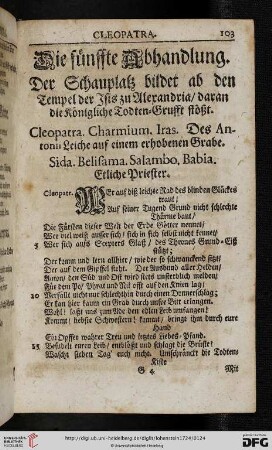 CLEOPATRA. 103
Die fünffte Abhandlung.
Der Schauplatz bildet ab den
Tempel der Isis zu Alexandria / daran
die Königliche Todten-Grufft stößt.
Cleopatra. Charmium. Iras. Des An-
tonii Leiche auf einem erhobenen Grabe.
Sida. Belisama. Salambo, Babia.
Etliche Priester.
Cleopatr. Wer auf diß leichte Rad des blinden Glückes
traut /
Auf seiner Tugend Grund nicht schlechte
Thürme baut /
Die Fürsten dieser Welt der Erde Götter nennet /
Wer viel weiß ausser sich / sich in sich selbst nicht kennet /
5 Wer sich aufs Scepters Glaß / des Thrones Grund-Eiß
stützt;
Der komm und lern allhier / wie der so schwanckend sitzt /
Der auf dem Gipffel steht. Der Ausbund aller Helden /
Anton, den Süd und Ost wird stets unsterblich melden /
Für dem Po / Phrat und Nil offt auf den Knien lag /
10 Verfällt nicht nur schlechthin durch einen Donnerschlag;
Er kan hier kaum ein Grab durch unser Bitt erlangen.
Wohl! laßt uns zum Ade den edlen Leib umfangen!
Kommt / liebste Schwestern! kommt / bringt ihm durch eure
Hand
Ein Opffer wahrer Treu und letztes Liebes-Pfand.
15 Besudelt euren Leib / entblößt und schlagt die Brüste!
Wascht sieben Tag' euch nicht. Umschränckt die Todten-
Kiste
G 4 Mit
http://digi.ub.uni-heidelberg.de/diglit/lohenstein1724/0124
© Universitätsbibliothek Heidelberg
gefördert durch die
DFG